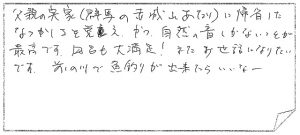 父親の実家(群馬の赤城山あたり)に帰省した
なつかしさを覚え、かつ、自然の音しかないところが
最高です。風呂も大満足！またお世話になりたい
です。前の川で魚釣りが出来たらいいなー